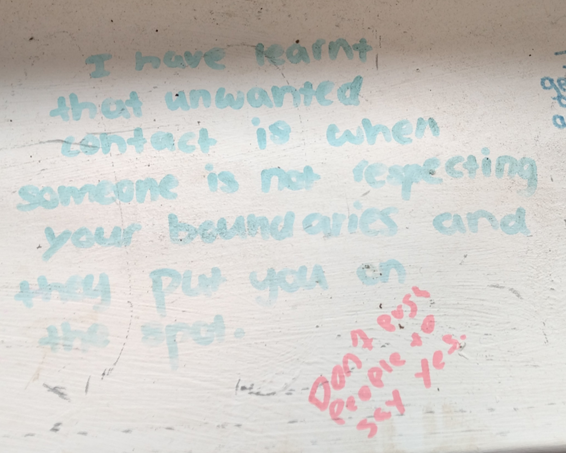 I have learnt
that unwanted
contact is when
someone is not respecting
your boundaries and
they put you on
the spot.
Don't push
people to
say yes.